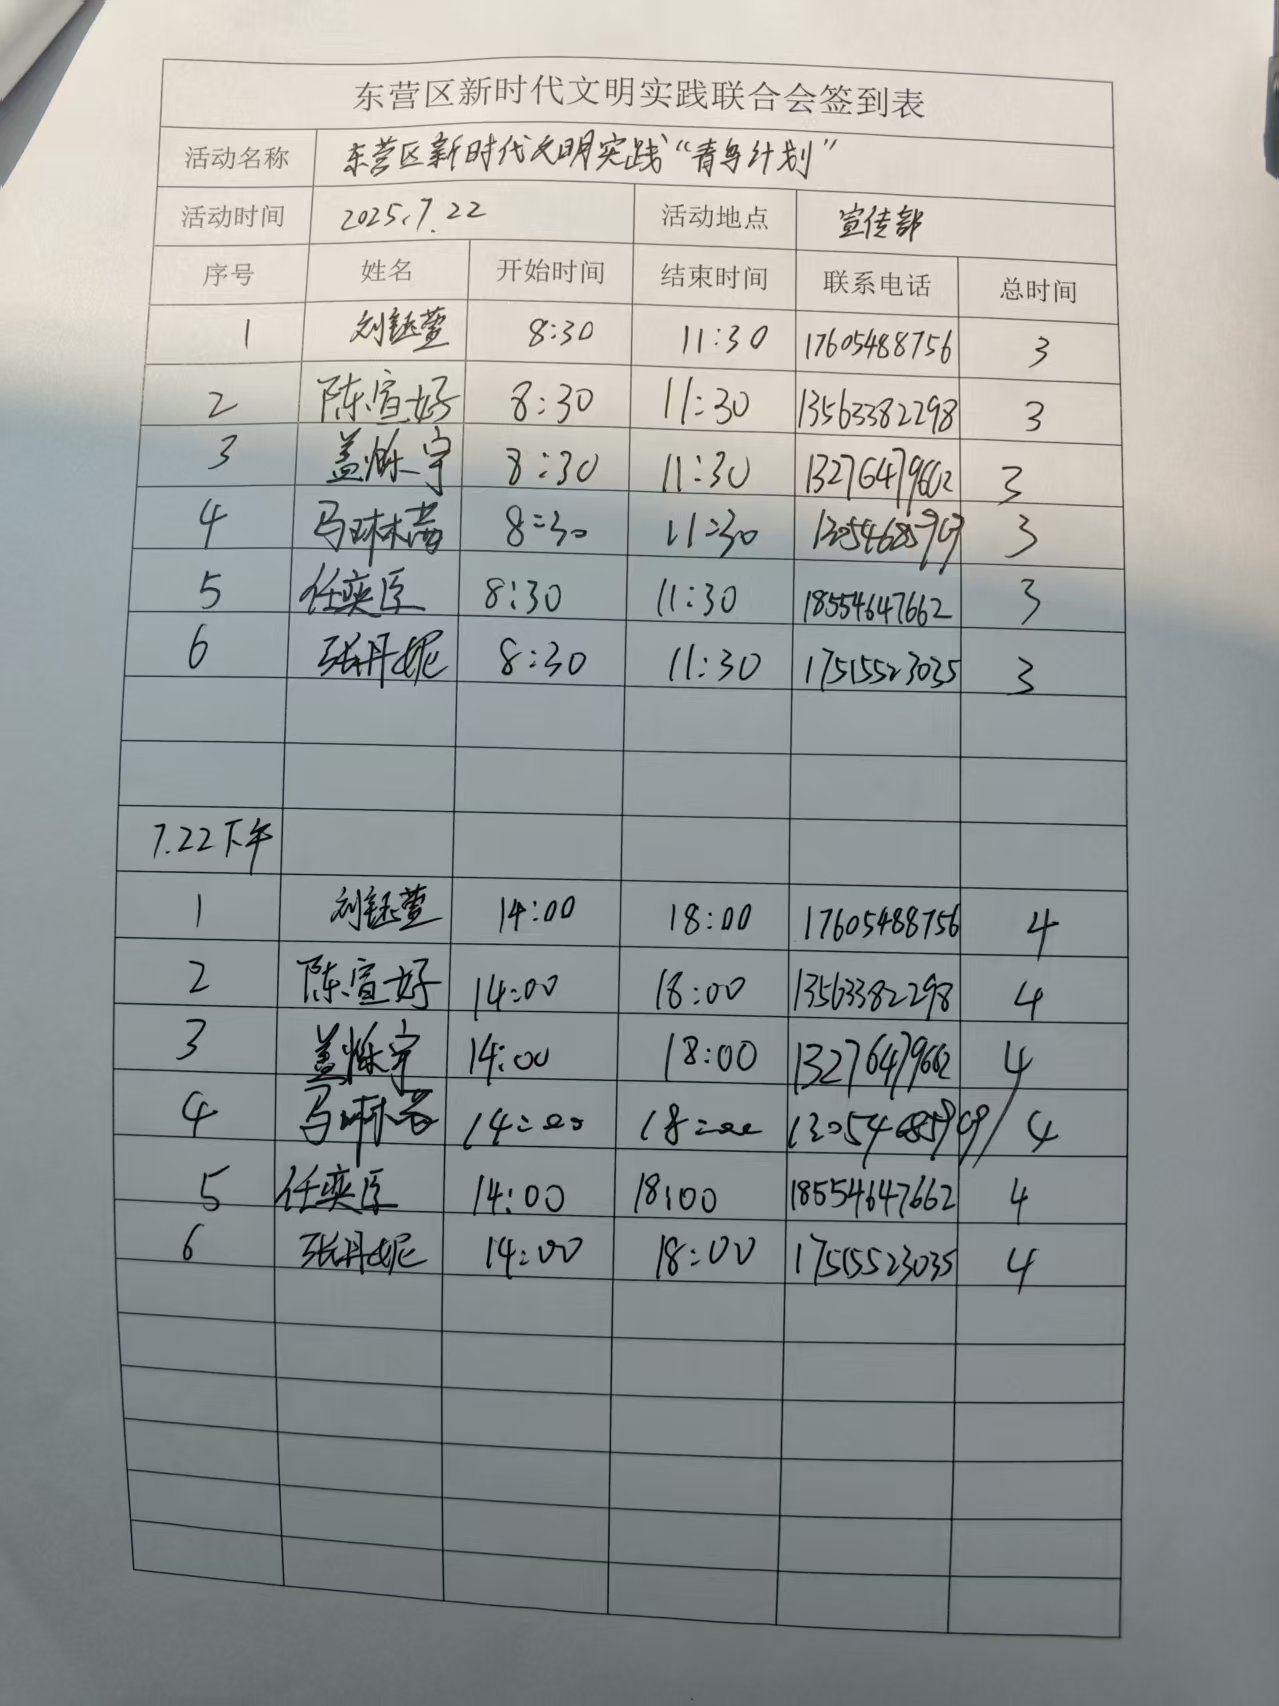 东营区新时代文明实践联合会签到表
活动名称 东营区新时代文明实践“青鸟计划”
活动时间 2025.7.22 活动地点 宣传部
序号 姓名 开始时间 结束时间 联系电话 总时间
1 刘钰萱 8:30 11:30 17605488756 3
2 陈宣好 8:30 11:30 13563382298 3
3 盖烁宇 8:30 11:30 13276479662 3
4 马琳茜 8:30 11:30 3
5 任奕臣 8:30 11:30 18554647662 3
6 张丹妮 8:30 11:30 17515523035 3
7.22下午
1 刘钰萱 14:00 18:00 17605488756 4
2 陈宣好 14:00 18:00 13563382298 4
3 盖烁宇 14:00 18:00 13276479662 4
4 马琳茜 14:00 18:00 4
5 任奕臣 14:00 18:00 18554647662 4
6 张丹妮 14:00 18:00 17515523035 4